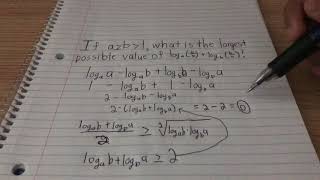 If a≥b>1, what is the largest
possible value of logₐ(a/b)+log_b(b/a)?
logₐa-logₐb+log_b b-log_b a
1 -logₐb + 1 -log_b a
2-logₐb-log_b a
2-(logₐb+log_b a) =2-2=0
(logₐb+log_b a)/2 ≥ ²√(logₐb·log_b a)
logₐb+log_b a ≥ 2